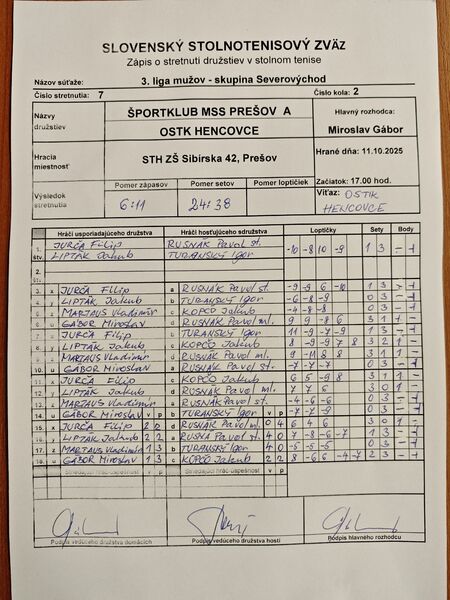 SLOVENSKÝ STOLNOTENISOVÝ ZVÄZ
Zápis o stretnutí družstiev v stolnom tenise
Názov súťaže: 3. liga mužov - skupina Severovýchod
Číslo stretnutia: 7 Číslo kola: 2
Názvy družstiev ŠPORTKLUB MSS PREŠOV A Hlavný rozhodca:
OSTK HENCOVCE Miroslav Gábor
Hracia miestnosť STH ZŠ Sibírska 42, Prešov Hrané dňa: 11.10.2025
Začiatok: 17.00 hod.
Výsledok stretnutia Pomer zápasov Pomer setov Pomer loptičiek Víťaz: OSTK HENCOVCE
6:11 24:38
Hráči usporiadajúceho družstva Hráči hosťujúceho družstva Loptičky Sety Body
1. štv. JURČA Filip RUSNÁK Pavol st. -10 -8 10 -9 1 3 - 1
LIPTÁK Jakub TURANSKÝ Igor
2. štv.
3. x JURČA Filip a RUSNÁK Pavol st. -9 -9 6 -10 1 3 - 1
4. y LIPTÁK Jakub b TURANSKÝ Igor -6 -8 -9 0 3 - 1
5. z MARTAUS Vladimír c KOPČO Jakub -4 -8 -8 0 3 - 1
6. u GÁBOR Miroslav d RUSNÁK Pavol ml. 9 9 -8 6 3 1 1 -
7. x JURČA Filip b TURANSKÝ Igor 11 -9 -7 -9 1 3 - 1
8. y LIPTÁK Jakub c KOPČO Jakub 8 -9 -9 7 8 3 2 1 -
9. z MARTAUS Vladimír d RUSNÁK Pavol ml. 9 -11 8 8 3 1 1 -
10. u GÁBOR Miroslav a RUSNÁK Pavol st. -7 -7 -7 0 3 - 1
11. x JURČA Filip c KOPČO Jakub 6 5 -9 8 3 1 1 -
12. y LIPTÁK Jakub d RUSNÁK Pavol ml. 7 7 6 3 0 1 -
13. z MARTAUS Vladimír a RUSNÁK Pavol st. -4 -6 -6 0 3 - 1
14. u GÁBOR Miroslav v p b TURANSKÝ Igor v p -7 -7 -9 0 3 - 1
15. x JURČA Filip 2 2 d RUSNÁK Pavol ml. 0 4 6 4 6 3 0 1 -
16. y LIPTÁK Jakub 2 2 a RUSNÁK Pavol st. 4 0 7 -8 -6 -7 1 3 - 1
17. z MARTAUS Vladimír 1 3 b TURANSKÝ Igor 4 0 -5 -5 -2 0 3 - 1
18. u GÁBOR Miroslav 1 3 c KOPČO Jakub 2 2 8 -6 6 -4 -7 2 3 - 1
Striedajúci hráč-úspešnosť v p Striedajúci hráč úspešnosť v p
Podpis vedúceho družstva domácich Podpis vedúceho družstva hostí Podpis hlavného rozhodcu